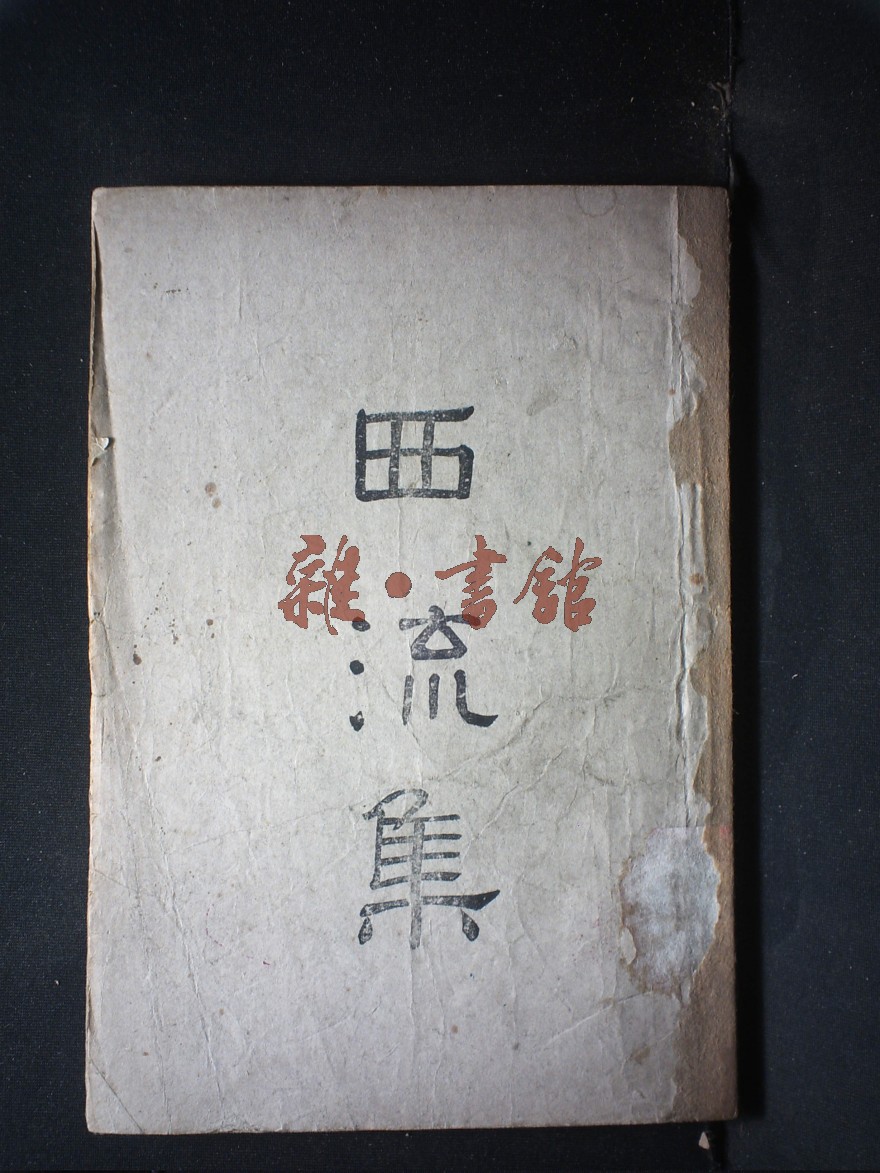 西流集
雜·書館